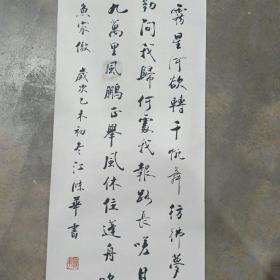 霧星河欲轉千帆舞彷彿夢
勤問我歸何處我報路長嗟日
九萬里風鵬正舉風休住蓬舟吹
魚家傲 歲次乙未初冬江陳華書